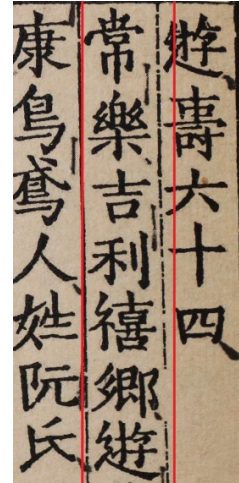 遊壽六十四
常樂吉利禧鄉遊
康烏鳶人姓阮氏